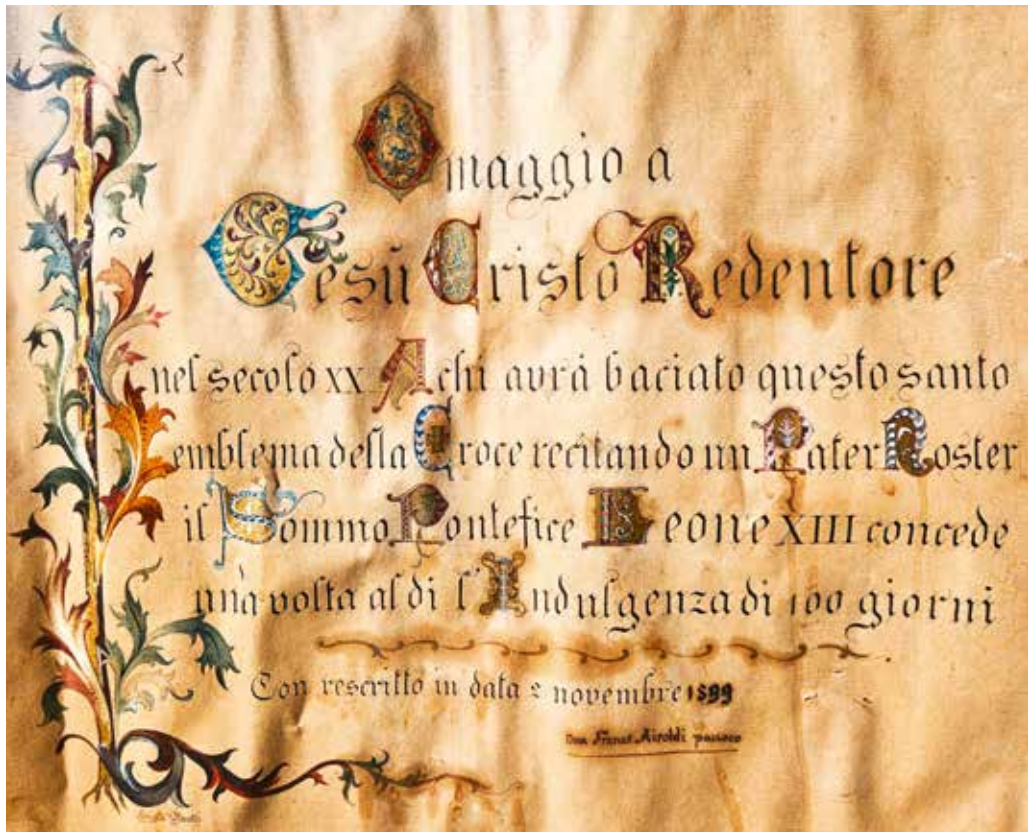 Omaggio a
Gesù Cristo Redentore
nel secolo XX A chi avrà baciato questo santo
emblema della Croce recitando un Pater Noster
il Sommo Pontefice Leone XIII concede
una volta al dì l'Indulgenza di 100 giorni
Con rescritto in data 2 novembre 1899
Don Airoldi parroco